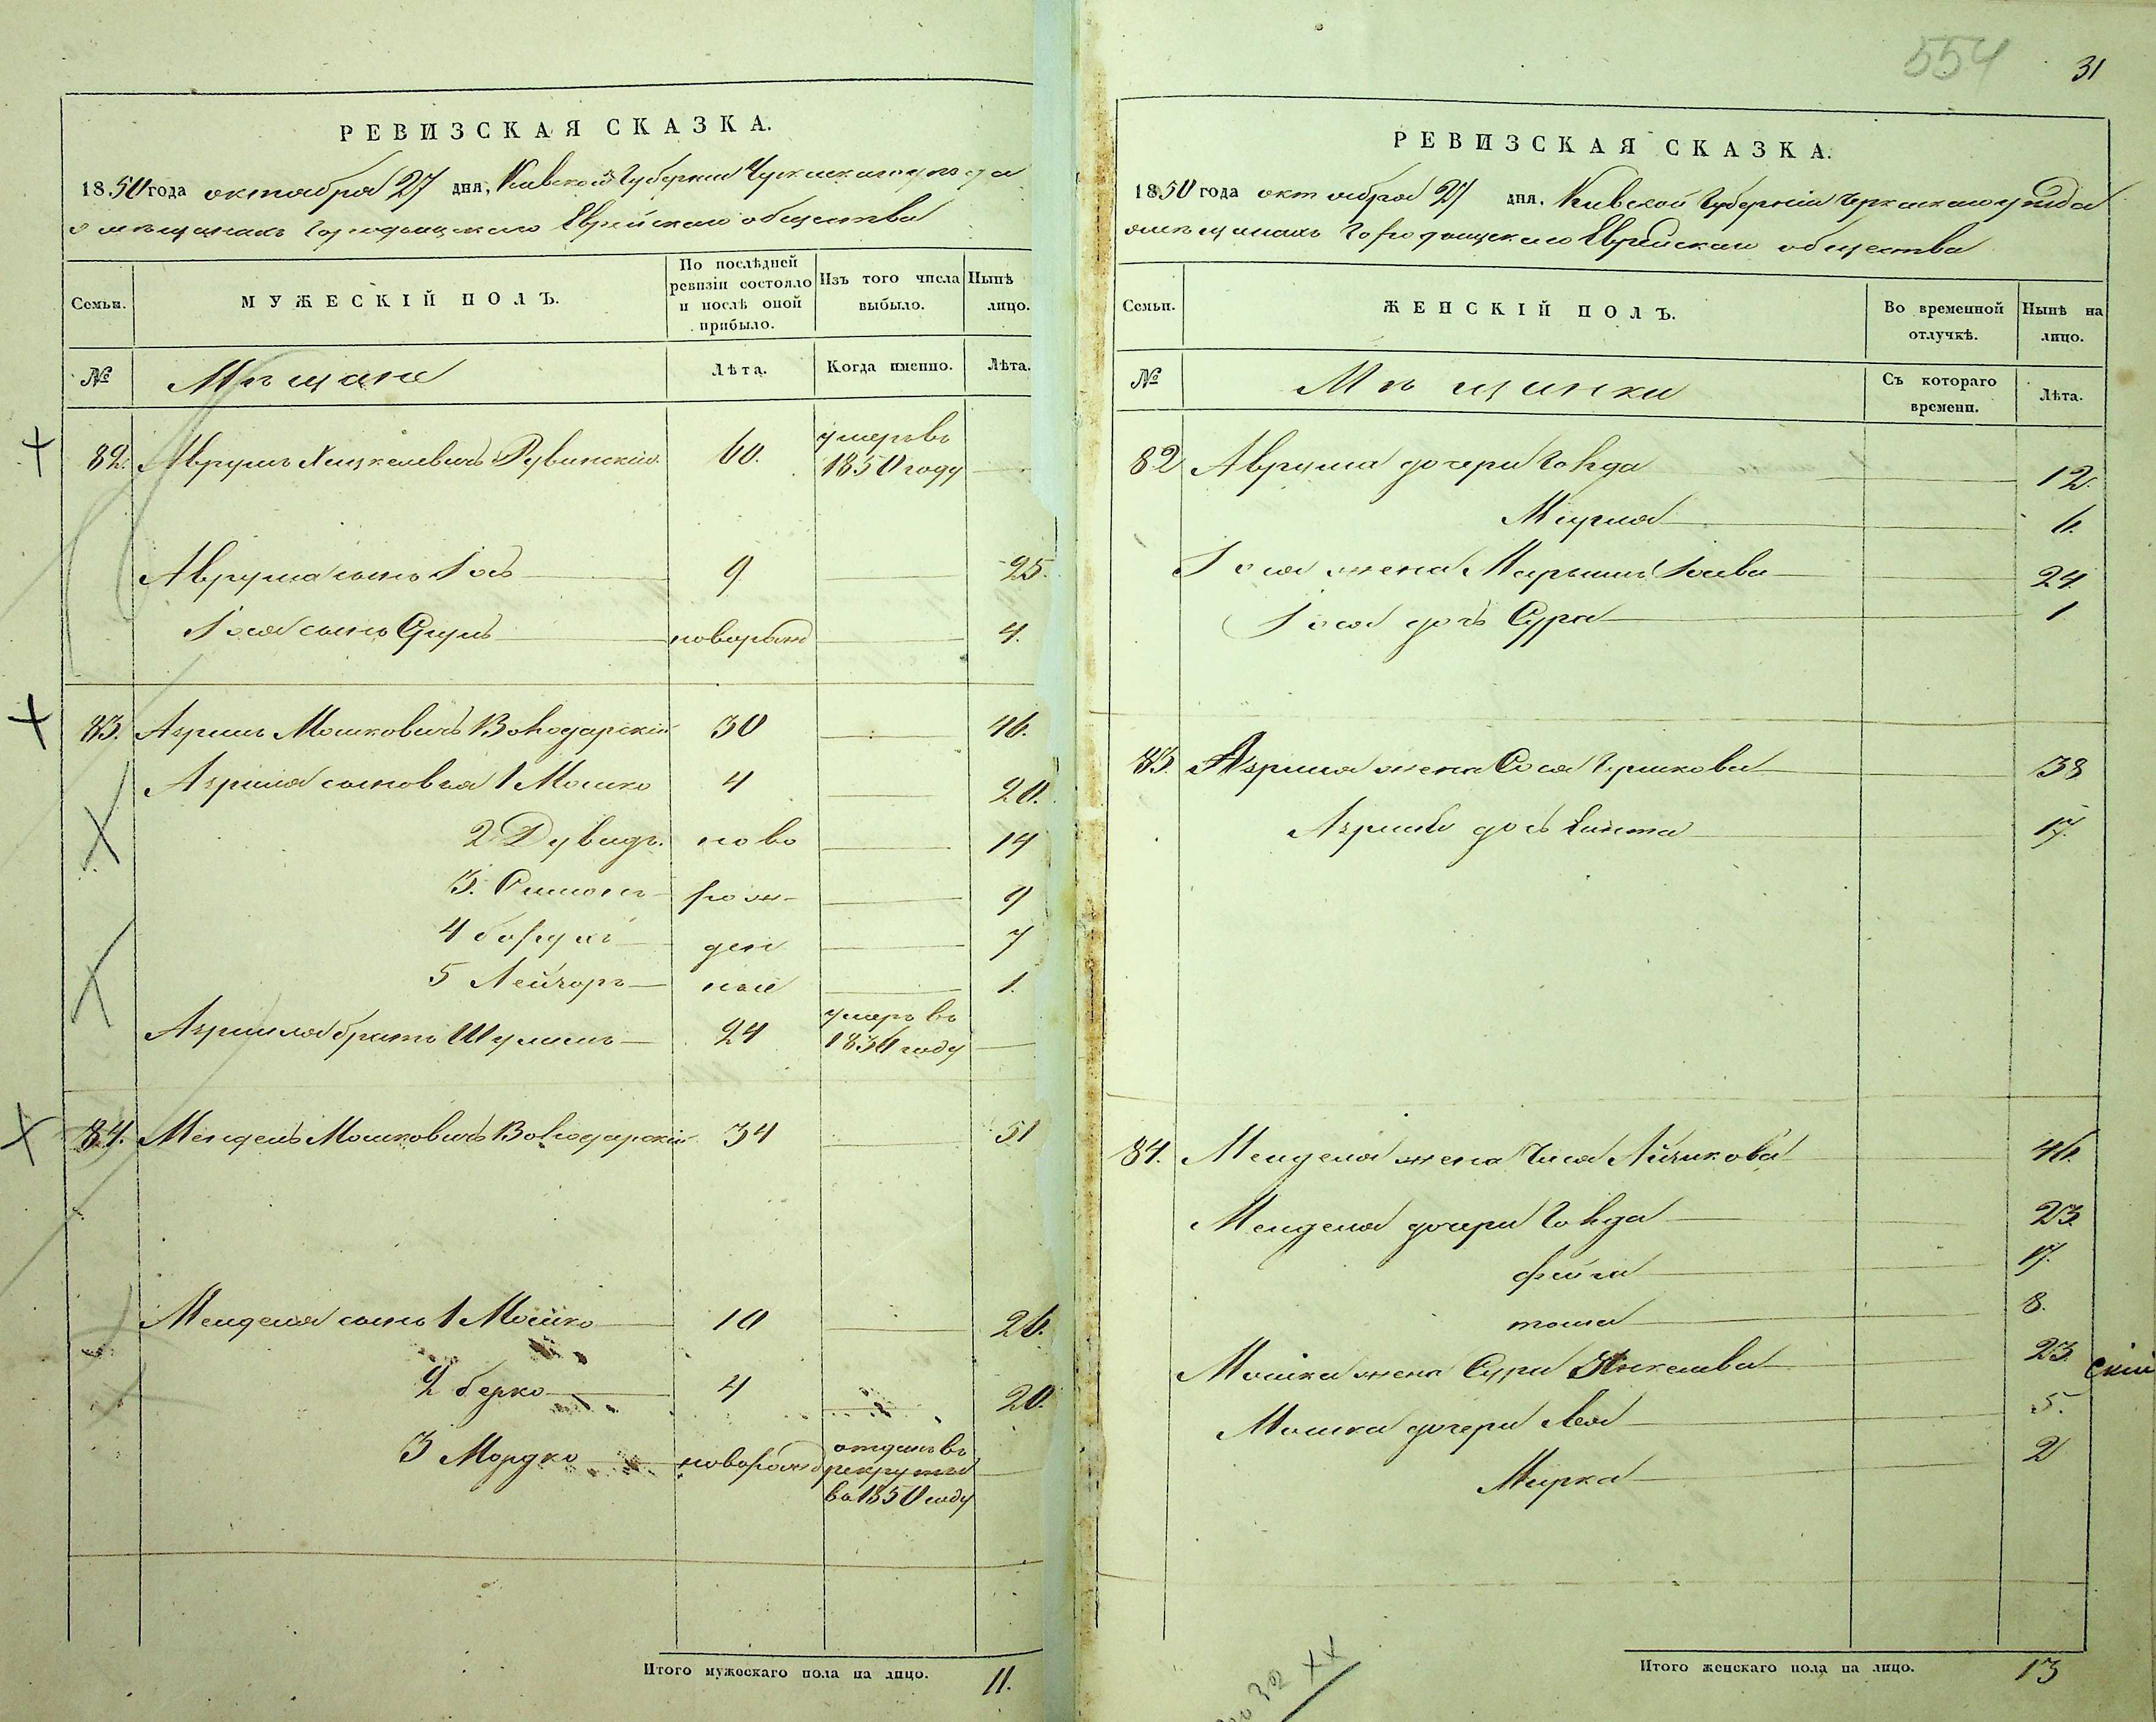 РЕВИЗСКАЯ СКАЗКА.
1850 года октября 27 дня, Киевской Губернии Черкаского уезда
о мещанахъ Городыщского Еврейскаго общества
Семьи.
МУЖЕСКІЙ ПОЛЪ.
По послѣдней ревизіи состояло и послѣ оной прибыло.
Изъ того числа выбыло.
Нынѣ лицо.
№
Мѣщане
Лѣта.
Когда именно.
Лѣта.
82. Аврумъ Хацкелевичъ Рувинскій 60. умеръ въ 1850 году
Аврума сынъ Іось 9 25.
Іося сынъ Сруль новорожд 4.
83. Азриль Мошковичъ Володарскій 30 46.
Азриля сыновья 1 Мошко 4 20.
2 Дувидъ. ново 14
3. Симонъ рож- 9
4 Борухъ ден 7
5 Лейзоръ ные 1.
Азриля братъ Шулимъ 24 умеръ въ 1836 году
84. Мендель Мошковичъ Володарскій 34 51
Менделя сынъ 1 Мошко 10 26.
2 Берко 4 20.
3 Мордко новорожд отданъ въ рекруты въ 1850 году
Итого мужескаго пола на лицо. 11.
554 31
РЕВИЗСКАЯ СКАЗКА.
1850 года октября 27 дня. Киевской Губерніи Черкаского уезда
о мещанахъ Городыщского Еврейскаго общества
Семьи.
ЖЕНСКІЙ ПОЛЪ.
Во временной отлучкѣ.
Нынѣ на лицо.
№
Мѣщанки
Съ котораго времени.
Лѣта.
82 Аврума дочери Голда 12.
6.
Іося жена 24.
Іося дочь Сура 1
83. Азриля жена Сося Гершкова 38
Азриля дочь 17.
84. Менделя жена Айзикова 46.
Менделя дочери Голда 23.
Фейга 17.
8.
Мошка жена Сура Янкелева 23.
скій
Мошка дочери Лея 5.
Мирка 2
Итого женскаго пола на лицо. 13
32 XX